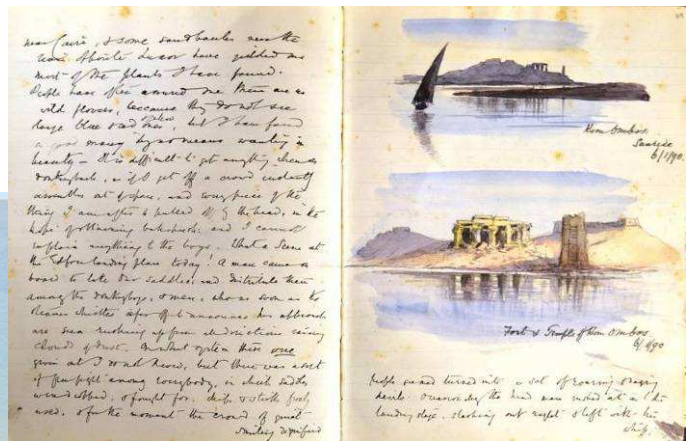 near Cairo, & some sandbanks near the
have yielded me
most of the plants I have found.
People have often around me there are no
wild flowers, because they do not see
large blue & red ones, but I have found
a good many by no means wanting in
beauty – It is difficult to get anything when on
donkeyback, as if I get off a crowd instantly
assembles at top pace, and every piece of the
thing I am after is pulled off by the head, in the
hope of obtaining baksheesh, and I cannot
explain anything to the boys. What a scene at
the Edfou landing place today! A man came on
board to take our saddles, and distribute them
among the donkeyboys, & men, who as soon as the
steamer whistles afar off announces her approach
are seen rushing up from all directions raising
clouds of dust. On what system this was
given out I do not know, but there was a sort
of free fight among everybody, in which saddles
were robbed, & fought for, sticks freely
used, & for the moment the crowd of quiet
smiling dignified
Kom Ombos
Sunrise
6/1/90.
Fort & Temple of Kom Ombos
6/1/90
people turned into a set of roaring
devils. Occasionally the head man rushed at in the
landing stage, slashing out right & left with his
whip.